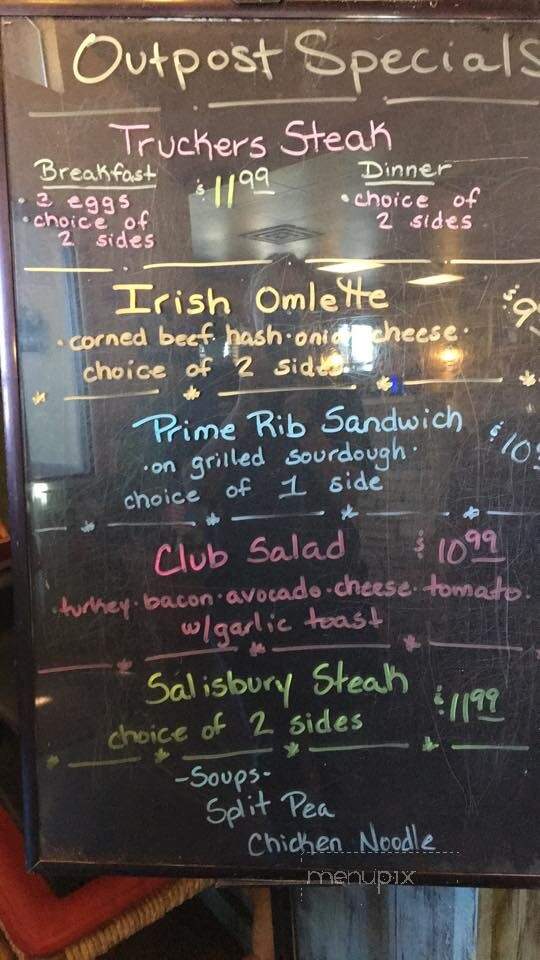 Outpost Specials
Truckers Steak
Breakfast
• 2 eggs
• choice of
2 sides
$11.99
Dinner
• choice of
2 sides
Irish Omlette
$9
• corned beef hash • onion cheese •
choice of 2 sides
Prime Rib Sandwich
$10
• on grilled sourdough •
choice of 1 side
Club Salad $10.99
• turkey • bacon • avocado • cheese • tomato •
w/garlic toast
Salisbury Steak
$11.99
choice of 2 sides
-Soups-
Split Pea
Chicken Noodle
menupix